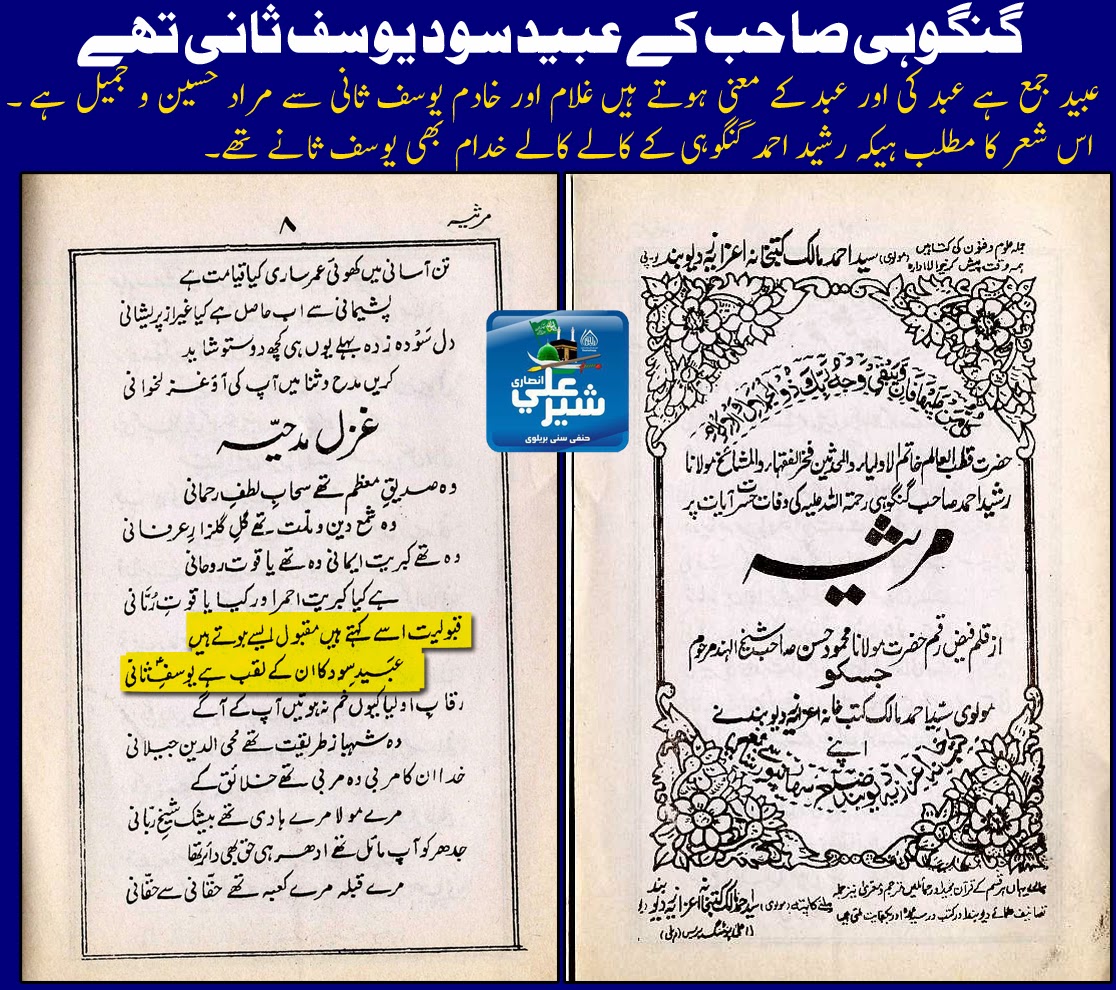 گنگوہی صاحب کے عبید سود یوسف ثانی تھے
عبید جمع ہے عبد کی اور عبد کے معنی ہوتے ہیں غلام اور خادم یوسف ثانی سے مراد حسین و جمیل ہے ۔
اس شعر کا مطلب ہیکہ رشید احمد گنگوہی کے کالے کالے خدام بھی یوسف ثانے تھے۔
جملہ علوم و فنون کی کتابیں
ہمہ وقت پیش کرنیوالا ادارہ
(مولوی) سید احمد مالک کتبخانہ اعزازیہ دیوبند یوپی
كل من عليها فان ويبقى وجه ربك ذو الجلال والاكرام
حضرت قطب العالم خاتم الاولیاء والمحدثین فخر الفقہاء والمشائخ مولانا
رشید احمد صاحب گنگوہی رحمۃ اللہ علیہ کی وفات حسرت آیات پر
مرثیہ
از قلم فیض رقم حضرت مولانا محمود حسن صاحب شیخ الہند مرحوم
جسکو
مولوی سید احمد مالک کتب خانہ اعزازیہ دیوبند نے
اپنے
کتب خانہ اعزازیہ دیوبند ضلع سہارنپور سے شائع کیا
ہمارے یہاں ہر قسم کے قرآن مجید اور حمائلیں مترجم و معری نیز جملہ
تصانیف علمائے دیوبند اور کتب درسیہ بکفایت ملتی ہیں
ملنے کا پتہ (مولوی) سید احمد مالک کتبخانہ اعزازیہ دیوبند
مرثیہ
۸
تن آسانی میں کھوئی عمر ساری کیا قیامت ہے
پشیمانی سے اب حاصل ہے کیا غیر از پریشانی
دل سودہ زدہ بہلے یوں ہی کچھ دوستو شاید
کریں مدح و ثنا میں آپ کی آؤ غزلخوانی
غزل مدحیہ
وہ صدیق معظم تھے سحاب لطف رحمانی
وہ شمع دین و ملت تھے گل گلزار عرفانی
وہ تھے کبریت ایمانی وہ تھے یاقوت روحانی
ہے کیا کبریت احمر اور کیا یاقوت رُمّانی
قبولیت اسے کہتے ہیں مقبول ایسے ہوتے ہیں
عبید سود کا ان کے لقب ہے یوسفؑ ثانی
رقاب اولیا کیوں خم نہ ہوتیں آپ کے آگے
وہ شہباز طریقت تھے محی الدین جیلانی
خدا ان کا مربی وہ مربی تھے خلائق کے
مرے مولا مرے ہادی تھے بیشک شیخ ربانی
جدھر کو آپ مائل تھے ادھر ہی حق بھی دائر تھا
مرے قبلہ مرے کعبہ تھے حقانی سے حقانی
شیر علی
انصاری
حنفی سنی بریلوی